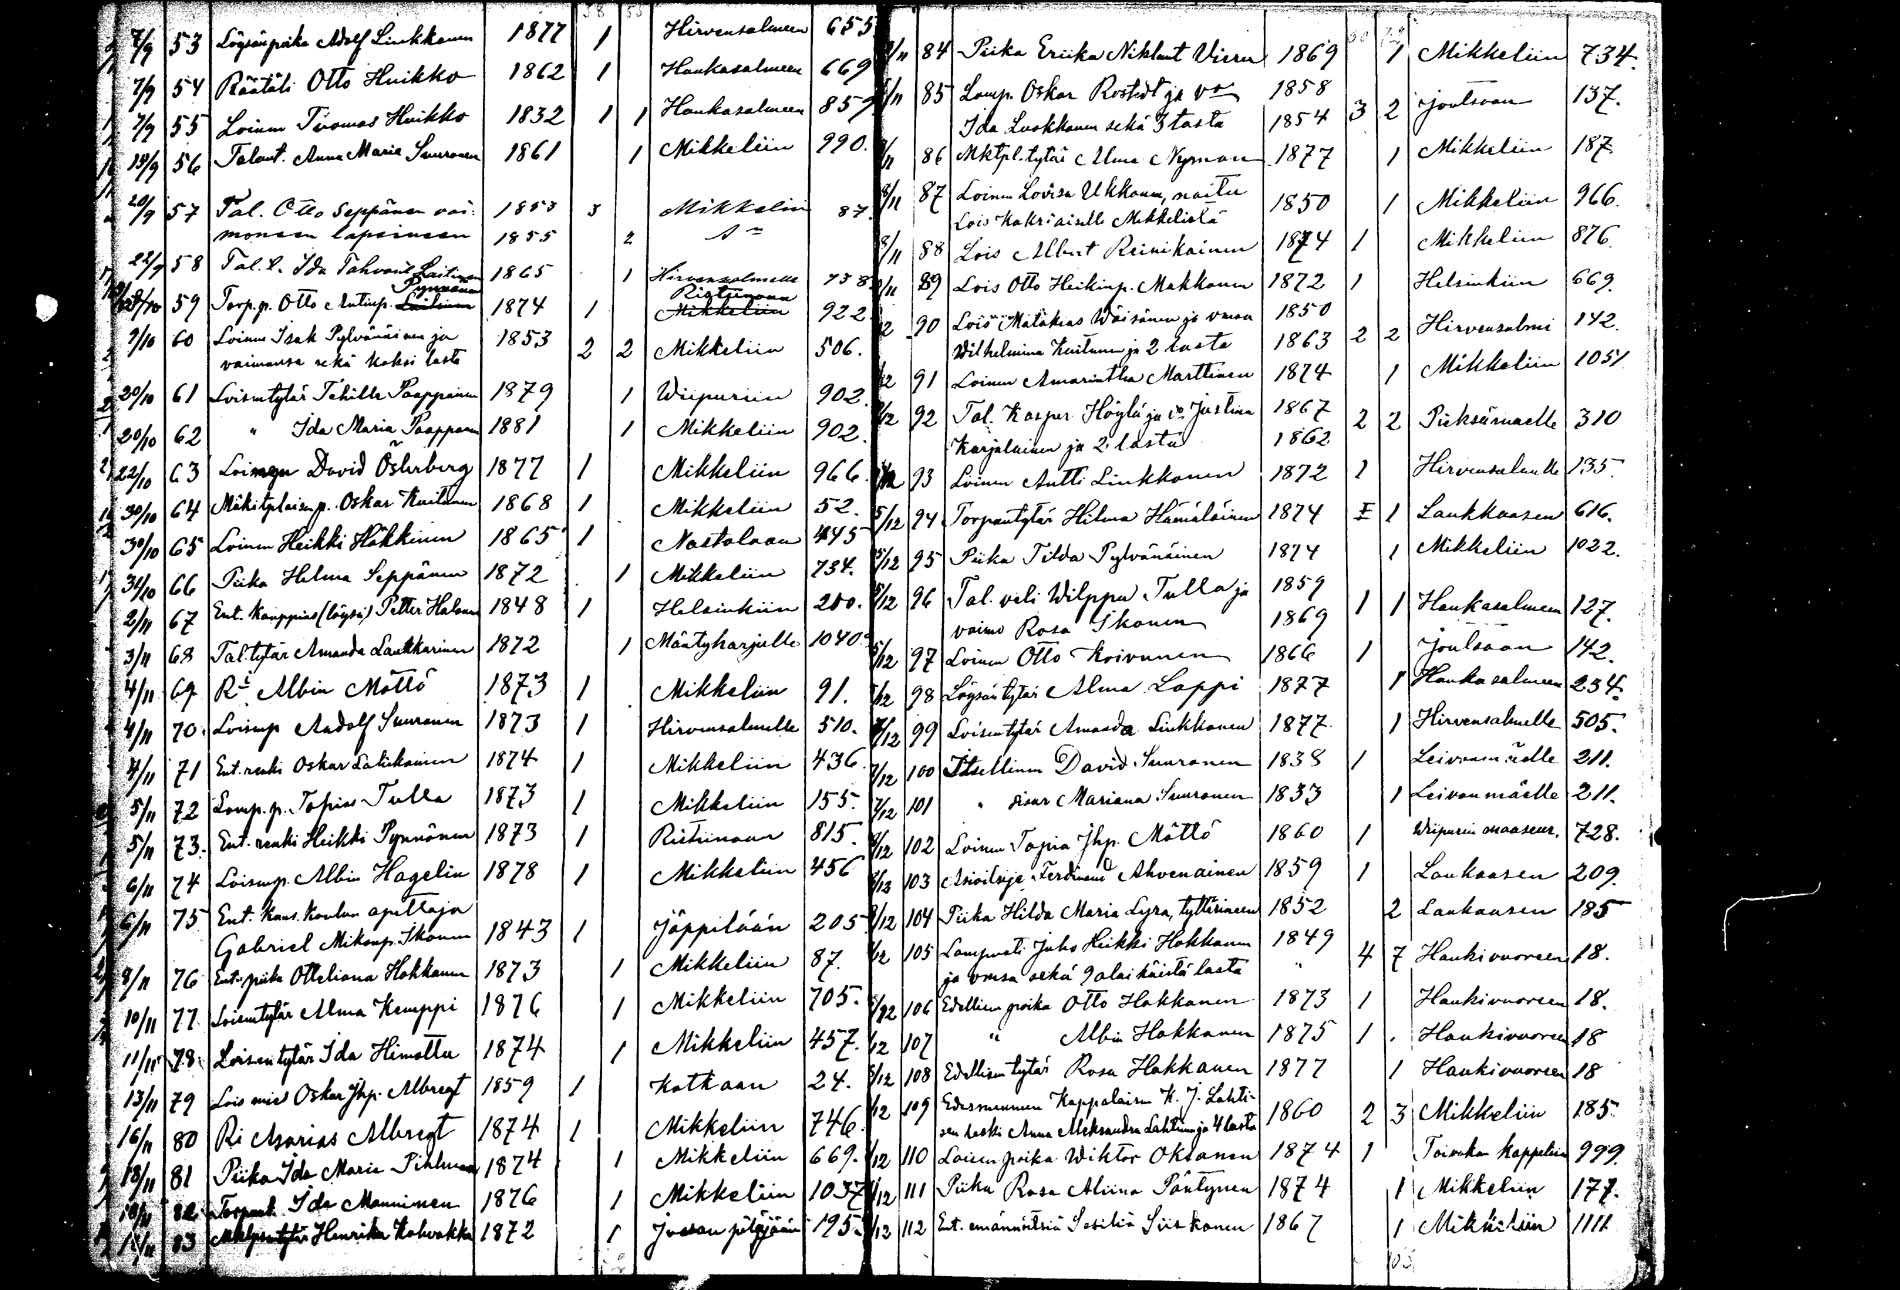 7/9 53 Löysänpoika Adolf Linkkanen 1877 1 Hirvensalmeen 655
7/9 54 Räätäli Otto Huikko 1862 1 Hankasalmeen 669
7/9 55 Loinen Tuomas Huikko 1832 1 1 Hankasalmeen 859
56 Talont. Anna Maria Suuronen 1861 1 Mikkeliin 990.
20/9 57 Tal. Otto Seppänen vai- 1853 3 Mikkeliin 87.
moneen lapsineen 1855 2
22/9 58 Tal. t. Ida Tahvont. Laitinen 1865 1 Hirvensalmelle 738
59 Torp. p. Otto Antinp. Pynnönen 1874 1 Ristiinaan 922
9/10 60 Loinen Isak Pylvänäinen ja 1853 2 2 Mikkeliin 506.
vaimonsa sekä kaksi lasta
20/10 61 Loisentytär Tehilla Paappanen 1879 1 Wiipuriin 902
20/10 62 " Ida Maria Paappanen 1881 1 Mikkeliin 902.
22/10 63 David Österberg 1877 1 Mikkeliin 966.
30/10 64 Mäkitplaisenp. Oskar Kuitunen 1868 1 Mikkeliin 52.
30/10 65 Loinen Heikki Häkkinen 1865 1 Nastolaan 445
31/10 66 Piika Helma Seppänen 1872 1 Mikkeliin 734.
2/11 67 Ent. kauppias (löysä) Petter Halonen 1848 1 Helsinkiin 200.
3/11 68 Tal. tytär Amanda Laukkarinen 1872 1 Mäntyharjulle 1040
4/11 69 Ri Albin Möttö 1873 1 Mikkeliin 91.
4/11 70. Loisenp Aadolf Suuronen 1873 1 Hirvensalmelle 510.
4/11 71 Ent. renki Oskar Latikainen 1874 1 Mikkeliin 436
5/11 72 Lamp. p. Topias Tulla 1873 1 Mikkeliin 155.
5/11 73. Ent. renki Heikki Pynnönen 1873 1 Ristiinaan 815.
6/11 74 Loisenp. Albin Hagelin 1878 1 Mikkeliin 456
6/11 75 Ent. Kans. Koulun opettaja
Gabriel Mikonp. Ikonen 1843 1 Jäppilään 205
8/11 76 Ent. piika Otteliana Hokkanen 1873 1 Mikkeliin 87.
10/11 77 Loisentytär Alma Kemppi 1876 1 Mikkeliin 705.
11/11 78 Loisentytär Ida Himottu 1874 1 Mikkeliin 457.
13/11 79 Lois mies Oskar Jhp. Albregt 1859 1 Kotkaan 24.
16/11 80 Ri Asarias Albregt 1874 1 Mikkeliin 746.
18/11 81 Piika Ida Maria Pihlman 1874 1 Mikkeliin 669.
82 Ida Manninen 1876 1 Mikkeliin 1037
83 Henrika Kohvakka 1872 1 195
84 Piika Eriika Niklaut. Vieru 1869 1 Mikkeliin 734.
85 Lamp. Oskar Rostedt ja vo 1858
Ida Luokkanen sekä 3 lasta 1854 3 2 Joutsaan 137.
86 Mktpl. tytär Alma Nyman 1877 1 Mikkeliin 187
8/11 87 Loinen Lovisa Ukkonen, naitu
Mikkelistä 1850 1 Mikkeliin 966.
8/11 88 Lois Albert Reinikainen 1874 1 Mikkeliin 876.
89 Lois Otto Heikinp. Makkonen 1872 1 Helsinkiin 669.
90 Lois Matakias Wäisänen ja vmsa 1850
Wilhelmina Kuitunen ja 2 lasta 1863 2 2 Hirvensalmi 142.
91 Loinen Amarintha Marttinen 1874 1 Mikkeliin 1051
92 Tal. Kasper Höylä ja vo Justina 1867 2 2 Pieksämaelle 310
Karjalainen ja 2 lasta 1862
93 Loinen Antti Linkkonen 1872 1 Hirvensalmelle 135.
5/12 94 Torpantytär Hilma Hämäläinen 1874 1 Laukkaasen 616.
5/12 95 Piika Tilda Pylvänäinen 1874 1 Mikkeliin 1022.
96 Tal. veli Wilppu Tulla ja 1859
vaimo Rosa Ikonen 1869 1 1 Hankasalmeen 127.
97 Loinen Otto Koivunen 1866 1 Joutsaan 142.
98 Löysän tytär Alma Lappi 1877 1 Hankasalmeen 234.
99 Loisentytär Amanda Linkkonen 1877 1 Hirvensalmelle 505.
7/12 100 Itsellinen David Suuronen 1838 1 Leivonmäelle 211.
7/12 101 " sisar Mariana Suuronen 1833 1 Leivonmäelle 211.
102 Loinen Topia Jhp. Möttö 1860 1 Wiipurin maaseur. 728.
103 Asioitsija Ferdinand Ahvenainen 1859 1 Laukaasen 209.
104 Piika Hilda Maria Lyra, tyttärineen 1852 2 Laukaasen 185
105 Lampuoti Juho Heikki Hokkanen 1849 4 7 Haukivuoreen 18.
ja vmsa sekä 9 alaikäistä lasta "
106 Edellisen poika Otto Hokkanen 1873 1 Haukivuoreen 18.
107 " Albin Hokkanen 1875 1 Haukivuoreen 18
108 Edellisen tytär Rosa Hokkanen 1877 1 Haukivuoreen 18
109 Edesmennen Kappalaisen K. J. Lahti-
sen leski Anna Aleksandra Lahtinen ja 4 lasta 1860 2 3 Mikkeliin 185.
110 Loisen poika Wiktor Oksanen 1874 1 Toivakan kappeliin 999.
111 Piika Rosa Aliina Päntynen 1874 1 Mikkeliin 177.
112 Ent. emännöitsiä Sesilia Siiskonen 1867 1 Mikkeliin 1111